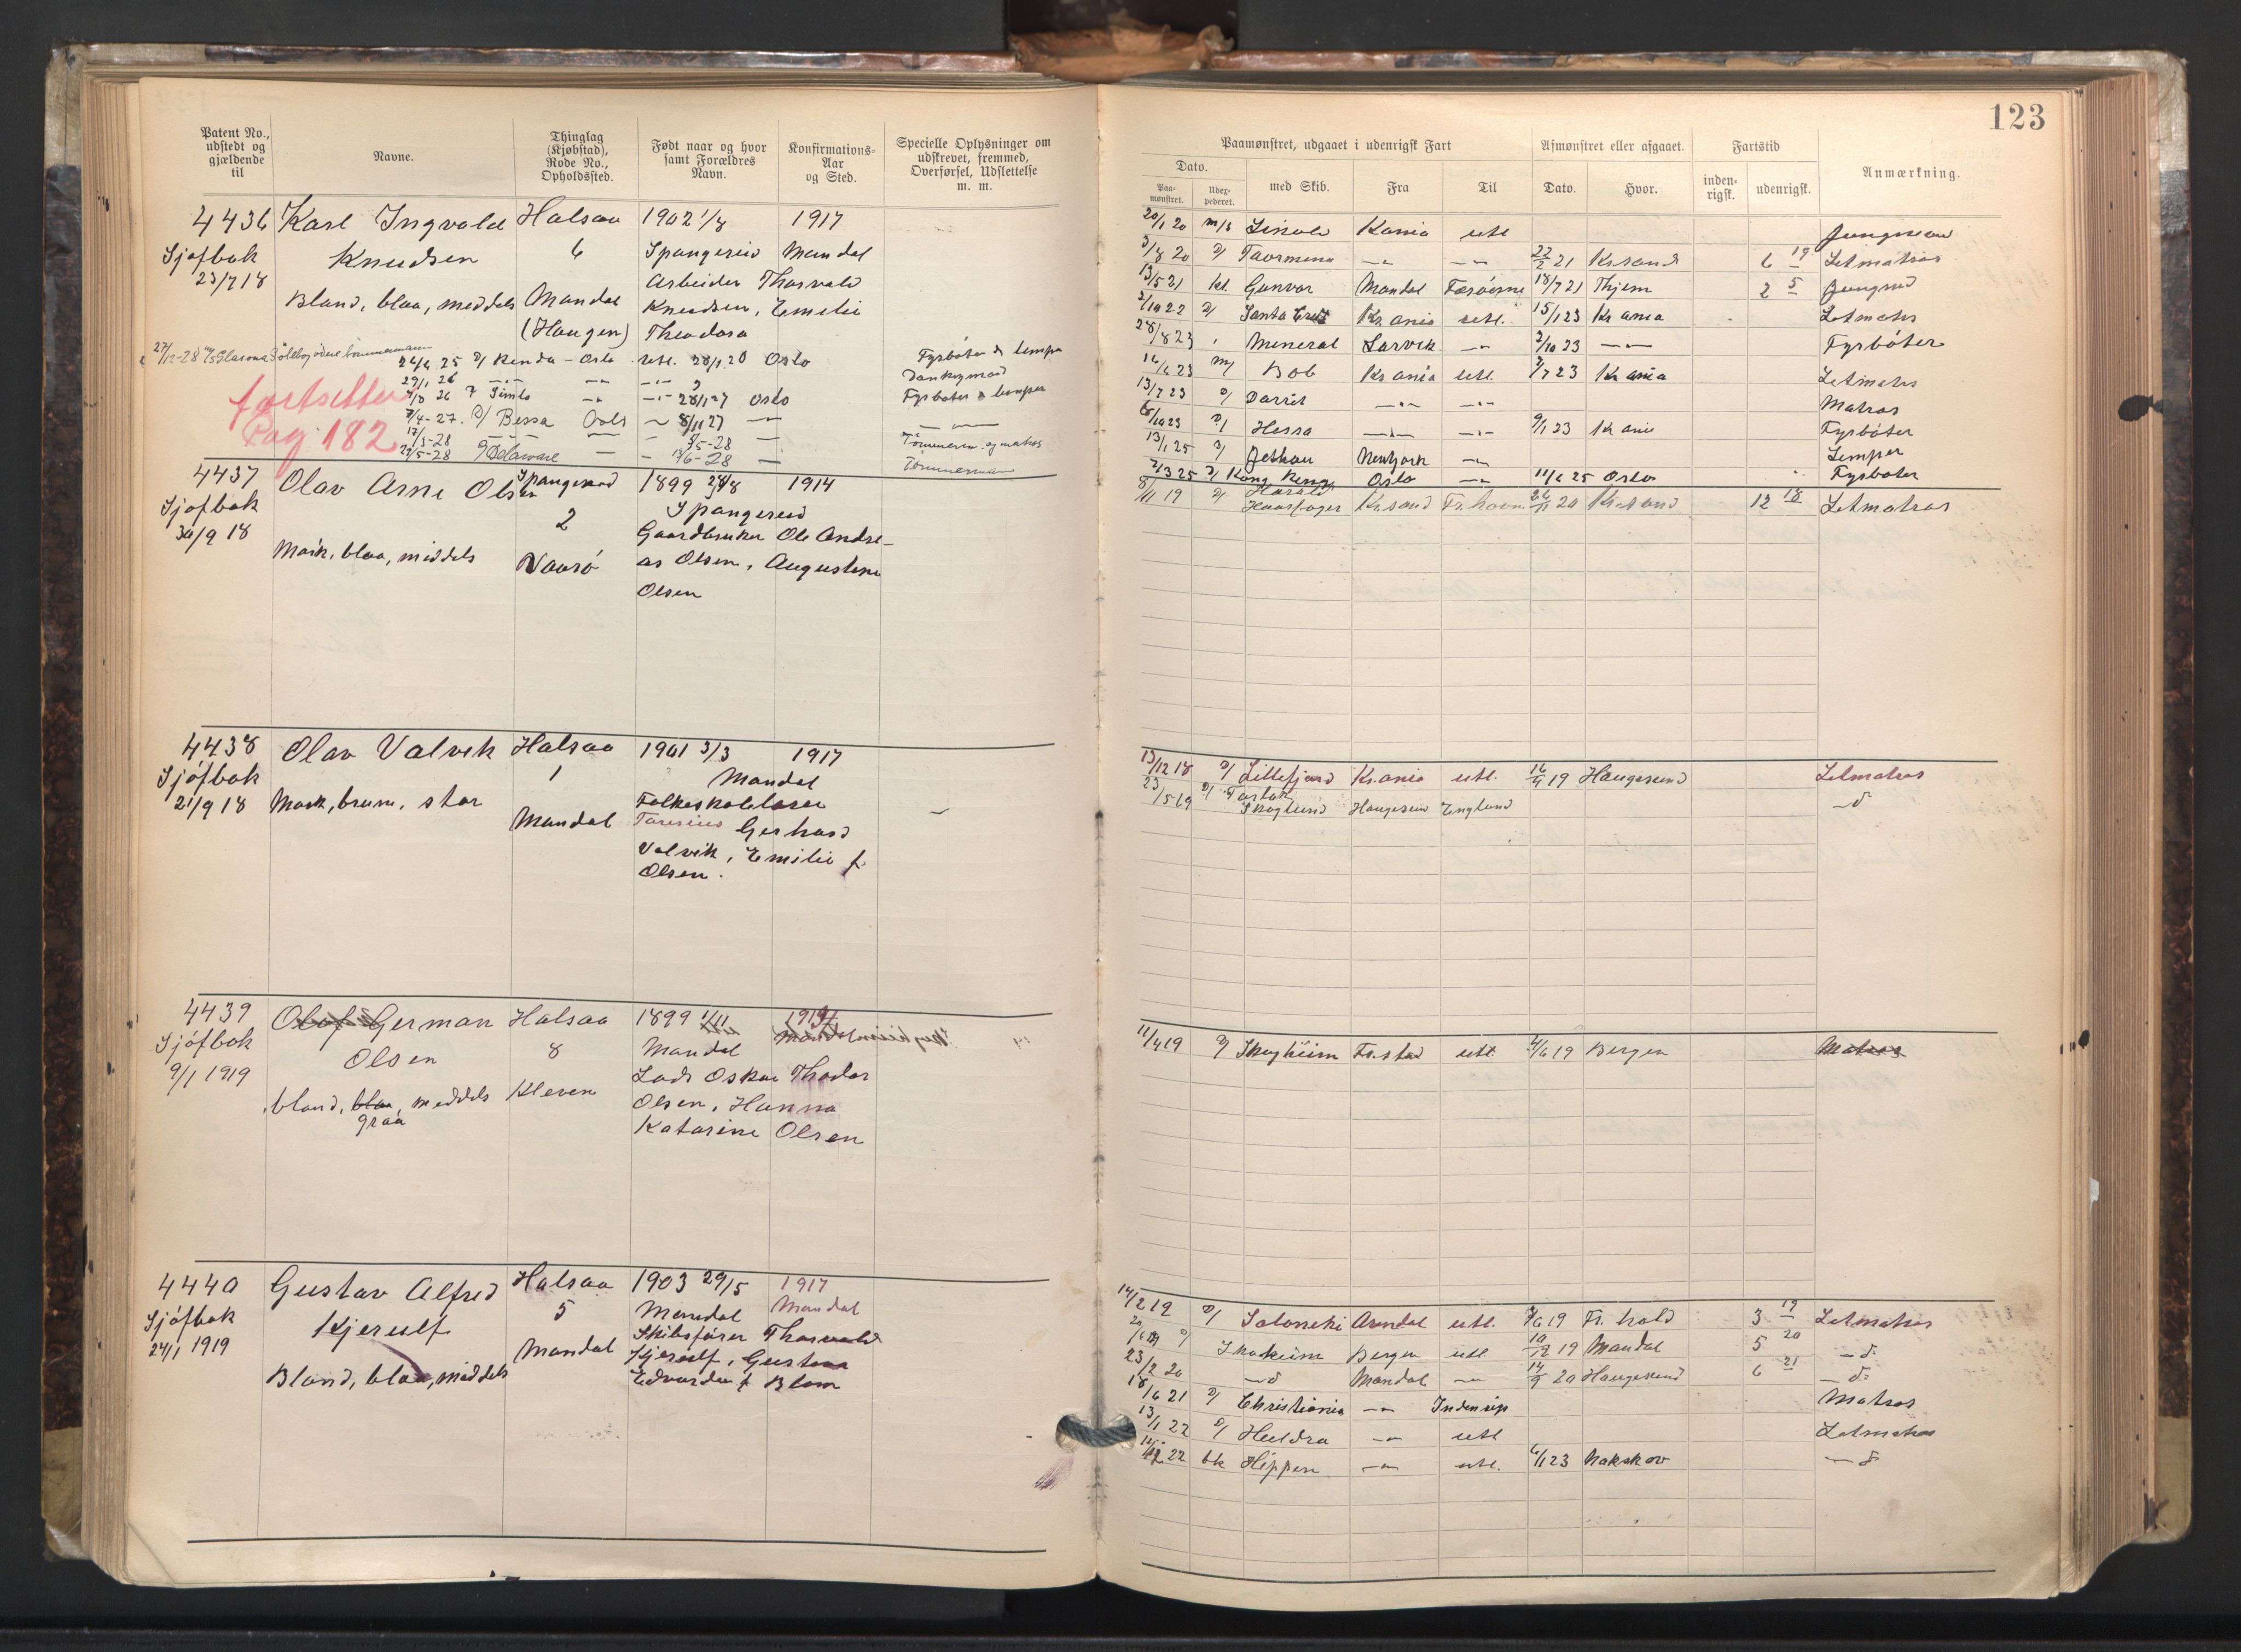 Patent No., udstedt og gjældende til
Navne.
Thinglag (Kjøbstad), Rode No., Opholdssted.
Født naar og hvor samt Forældres Navn.
Konfirmations-Aar og Sted.
Specielle Oplysninger om udskrevet, fremmed, Overførsel, Udslettelse m. m.
4436 Karl Ingvald Halsaa 1902 1/8 1917
Sjøfbok Knudsen 6 Spangereid Mandal
23/7 18 Arbeider Thorvald
Blond, blaa, meddels Mandal Knudsen, Emelie
(Haugen) Theodora
27/12-28
24/6 25 D/ Kenda - Oslo utl. 28/1 26 Oslo Fyrbøter & lemper
29/1 26 Dankeymand
26 Simla 28/1 27 Oslo Fyrbøter & lemper
fortsetter
Pag 182
/4-27. D/ Bessa Oslo 8/11 27
17/3-28 /5-28 Tømmerm. og matros
22/5-28 Delaware /6-28 Tømmermann
4437 Olav Arne Olsen Spangereid 1899 1914
Sjøfbok 2 Spangereid
30/9 18 Gaardbruker Ole Andre-
Mørk, blaa, middels Vaarø as Olsen, Augustine
Olsen
4438 Olav Valvik Halsaa 1901 3/3 1917
Sjøfbok 1 Mandal
21/9 18 Mørk, brun, stor Folkeskolelærer
Mandal Gerhard
Valvik, Emilie f.
Olsen.
4439 Olaf German Halsaa 1899 1/11
Sjøfbok Olsen 8 Mandal
9/1 1919 Lods Oskar Thodor
blond, blaa, meddels Kleven Olsen, Hanna
graa
Katarine Olsen
4440 Gustav Alfred Halsaa 1903 29/5 1917
Sjøfbok Kjerulf 5 Mandal Mandal
24/1 1919 Mandal Skibsfører Thorvald
Kjerulf, Gustava
Blond, blaa, middels Edvarda f. Blom
123
Paamønstret, udgaaet i udenrigsk Fart
Afmønstret eller afgaaet.
Fartstid
Anmærkning.
Dato.
Paa-mønstret.
Uder-pederet.
med Skib.
Fra
Til
Dato.
Hvor.
inden-rigsk.
udenrigsk.
20/1 20 m/s Kania utl Jungmand
3/8 20 D/ Taormina 22/2 21 Kr.sand 6 19 Letmatros
13/5 21 kt. Gunvor Mandal Færøerne 18/7 21 Thjem 2 5 Jungmd
/10 22 D/ Santa Cruz Kr ania utl. 15/1 23 Kr ania Letmatrs
28/8 23 Mineral Larvik /10 23 Fyrbøter
16/6 23 m/ Bob Kr ania utl. /7 23 Kr ania Letmatrs
13/7 23 D/ Matros
/10 23 D/ Hessa 9/1 23 Kr ania Fyrbøter
13/1 25 D/ Newyork Lemper
2/3 25 D/ Kong Ring Oslo 11/6 25 Oslo Fyrbøter
8/11 19 D/ Harald Haarfager Kr.sand Fr.havn 26/11 20 Kr.sand 12 18 Letmatros
13/12 18 D/ Lillefjord Kr.ania utl. 16/4 19 Haugesund Letmatros
23/5 19 D/ Skoglund Haugesun England
11/4 19 D/ Skogheim Fr.stad utl. /6 19 Bergen Matros
14/2 19 D/ Saloniki Arendal utl. /6 19 Fr. hald 3 19 Letmatros
D/ Skogheim Bergen utl 10/12 19 Mandal 5 20
23/2 20 Mandal 14/9 20 Haugesund 6 21
18/6 21 D/ Christiania Indenrigs Matros
13/1 22 D/ Huldra utl Letmatros
22 bk Hippen utl. 6/1 23 Nakskov